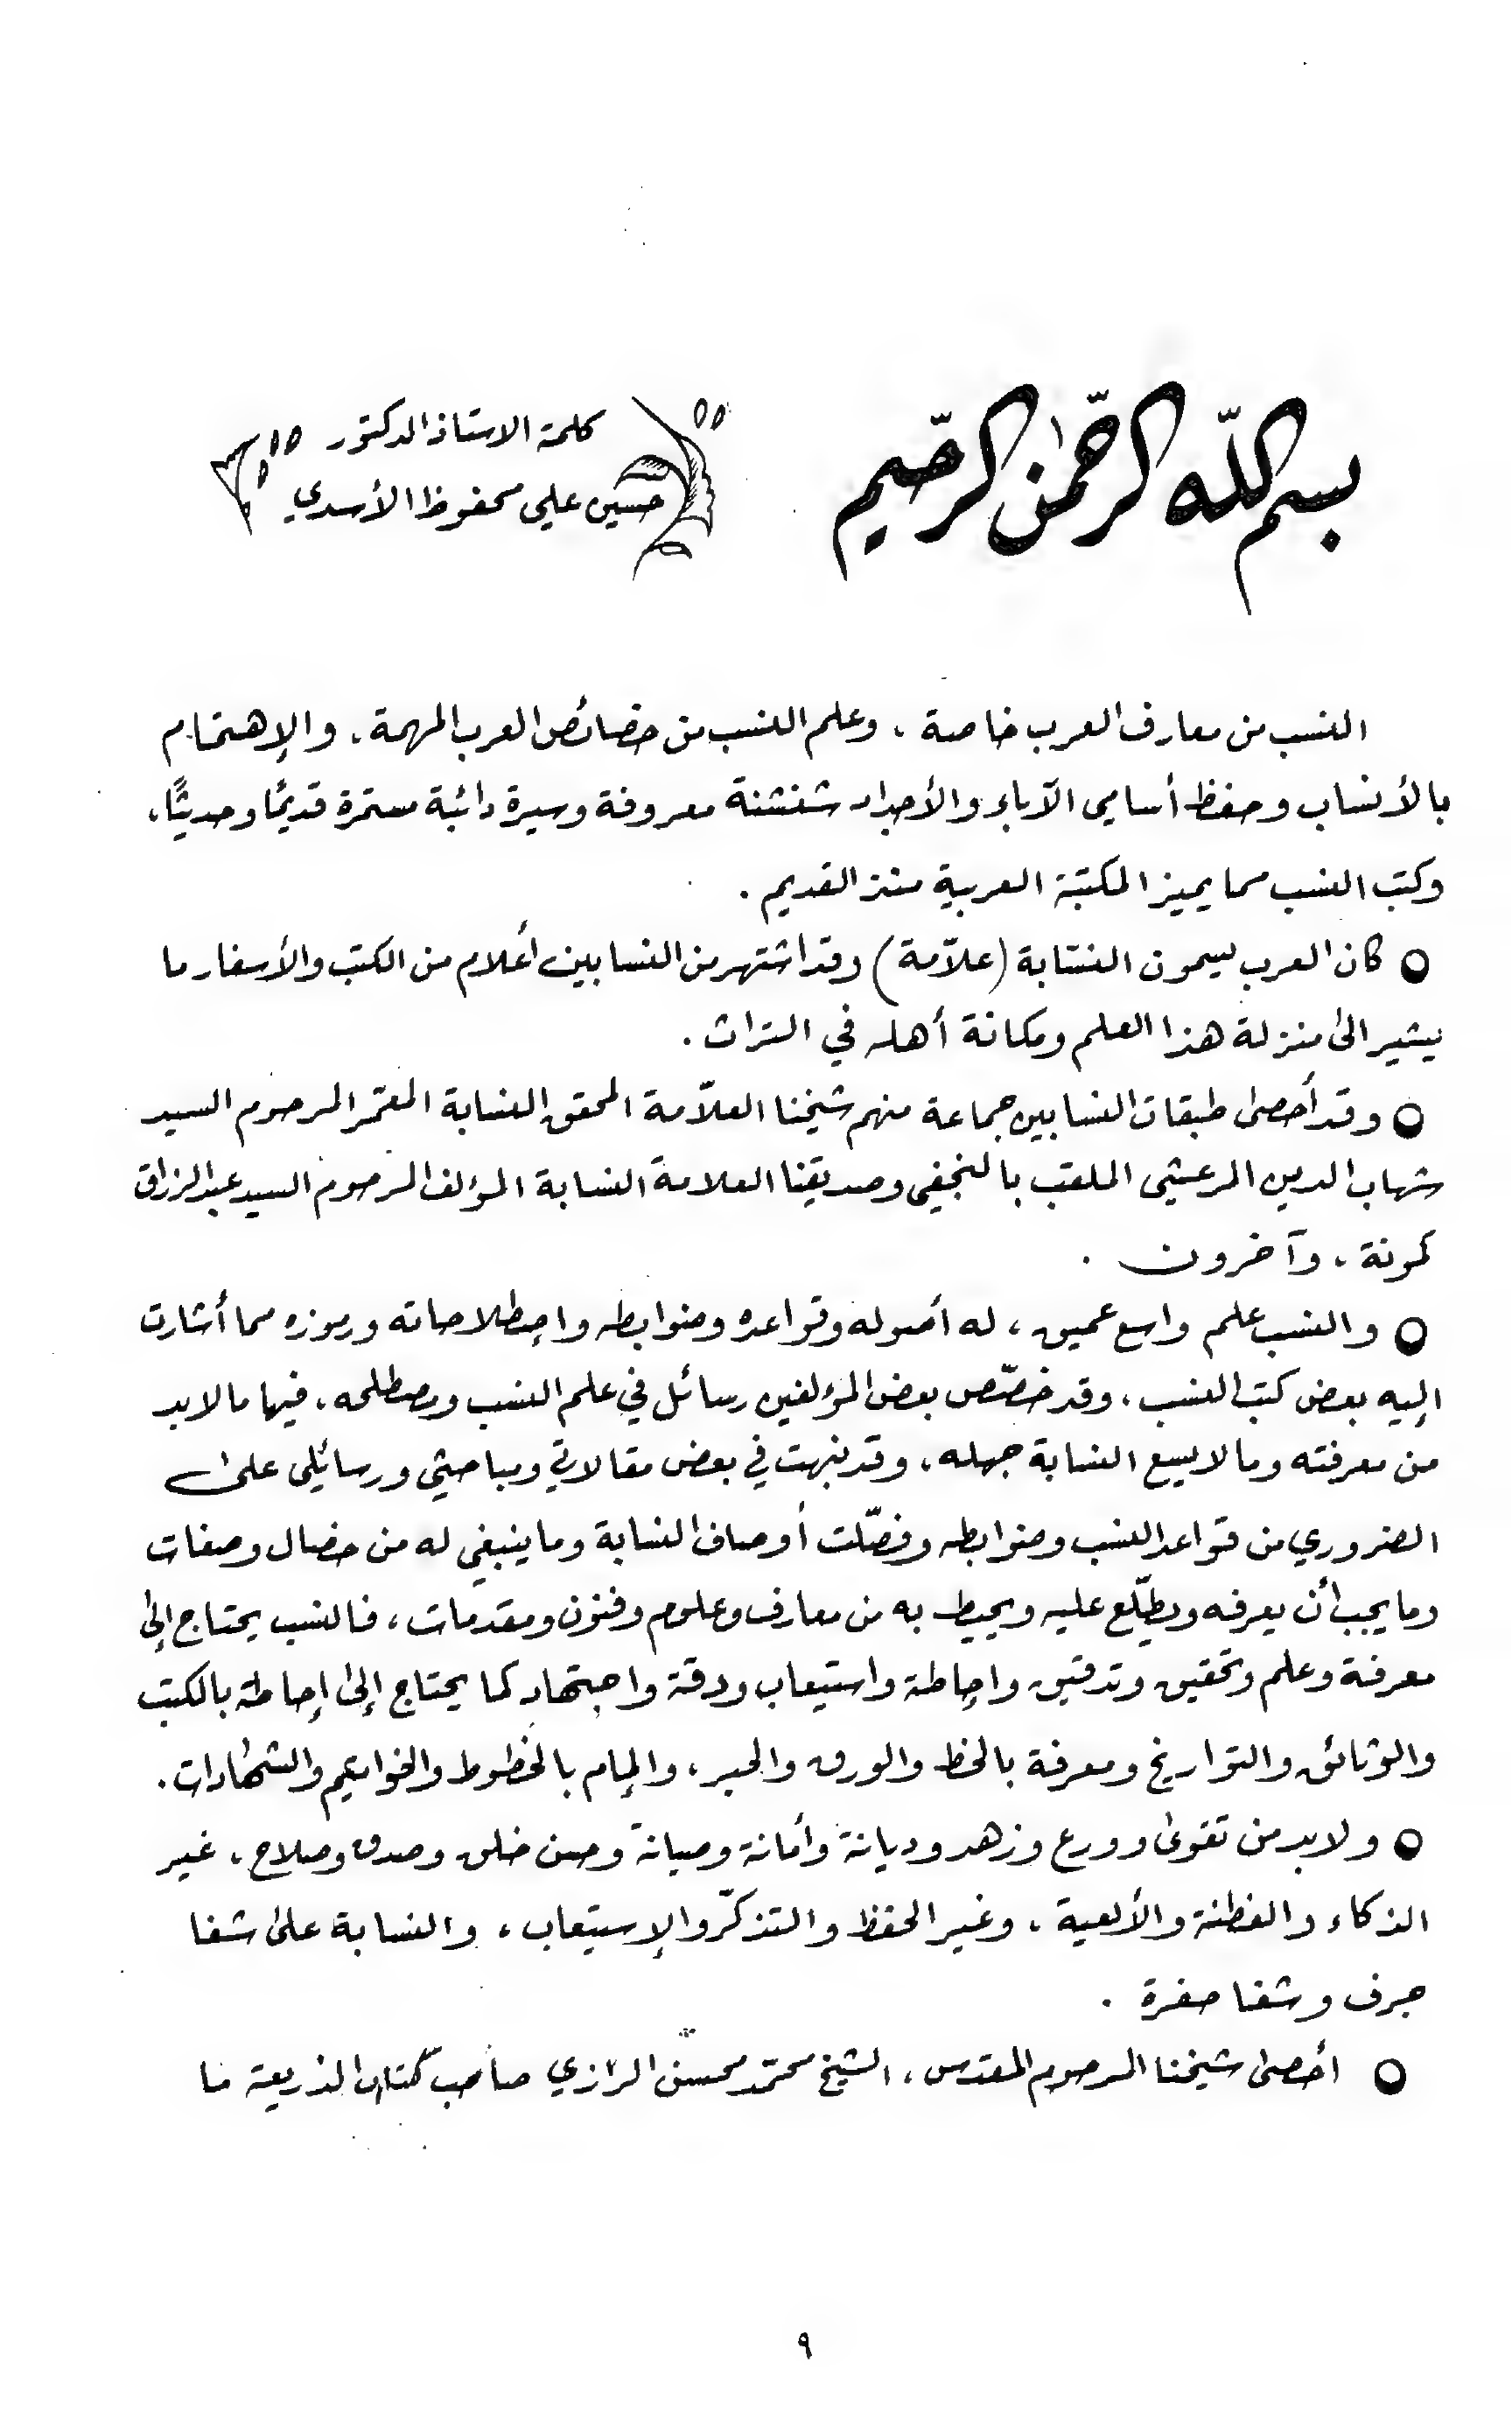 بسم الله الرحمن الرحيم
كلمة الاستاذ الدكتور
حسين علي محفوظ الأسدي
النسب من معارف العرب خاصة ، وعلم النسب من خصائص العرب المهمة ، والإهتمام
بالأنساب وحفظ أسامي الآباء والأجداد شنشنة معروفة وسيرة دائبة مستمرة قديمًا وحديثًا ،
وكتب النسب مما يميز المكتبة العربية منذ القديم .
○ كان العرب يسمون النسّابة (علاّمة) وقد اشتهر من النسابين أعلام من الكتب والأسفار ما
يشير الى منزلة هذا العلم ومكانة أهله في التراث .
○ وقد أحصى طبقات النسابين جماعة منهم شيخنا العلاّمة المحقق النسابة المعمّر المرحوم السيد
شهاب الدين المرعشي الملقب بالنجفي وصديقنا العلامة النسابة المؤلف المرحوم السيد عبد الرزاق
كمونة ، وآخرون .
○ والنسب علم واسع عميق ، له أصوله وقواعده وضوابطه وإصطلاحاته ورموزه مما أشارت
إليه بعض كتب النسب ، وقد خصّص بعض المؤلفين رسائل في علم النسب ومصطلحه ، فيها ما لابد
من معرفته وما لا يسع النسابة جهله ، وقد نبهت في بعض مقالاتي ومباحثي ورسائلي على
الضروري من قواعد النسب وضوابطه وفصّلت أوصاف النسابة وما ينبغي له من خصال وصفات
وما يجب أن يعرفه ويطّلع عليه ويحيط به من معارف وعلوم وفنون ومقدمات ، فالنسب يحتاج إلى
معرفة وعلم وتحقيق وتدقيق وإحاطة واستيعاب ودقة واجتهاد كما يحتاج إلى إحاطة بالكتب
والوثائق والتواريخ ومعرفة بالخط والورق والحبر ، وإلمام بالخطوط والخواتيم والشهادات .
○ ولابد من تقوى وورع وزهد وديانة وأمانة وصيانة وحسن خلق وصدق وصلاح ، غير
الذكاء والفطنة والألعية ، وغير الحفظ والتذكّر والإستيعاب ، والنسابة على شفا
جرف وشفا حفرة .
○ أحصى شيخنا المرحوم المقدس ، الشيخ محمّد محسن الرازي صاحب كتاب الذريعة ما
٩